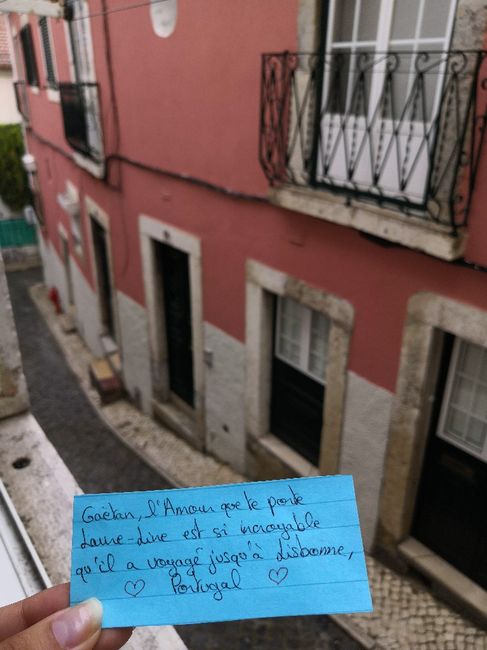 Gaëtan, l'Amour que te porte
Laure-Line est si incroyable
qu'il a voyagé jusqu'à Lisbonne,
♡ Portugal ♡